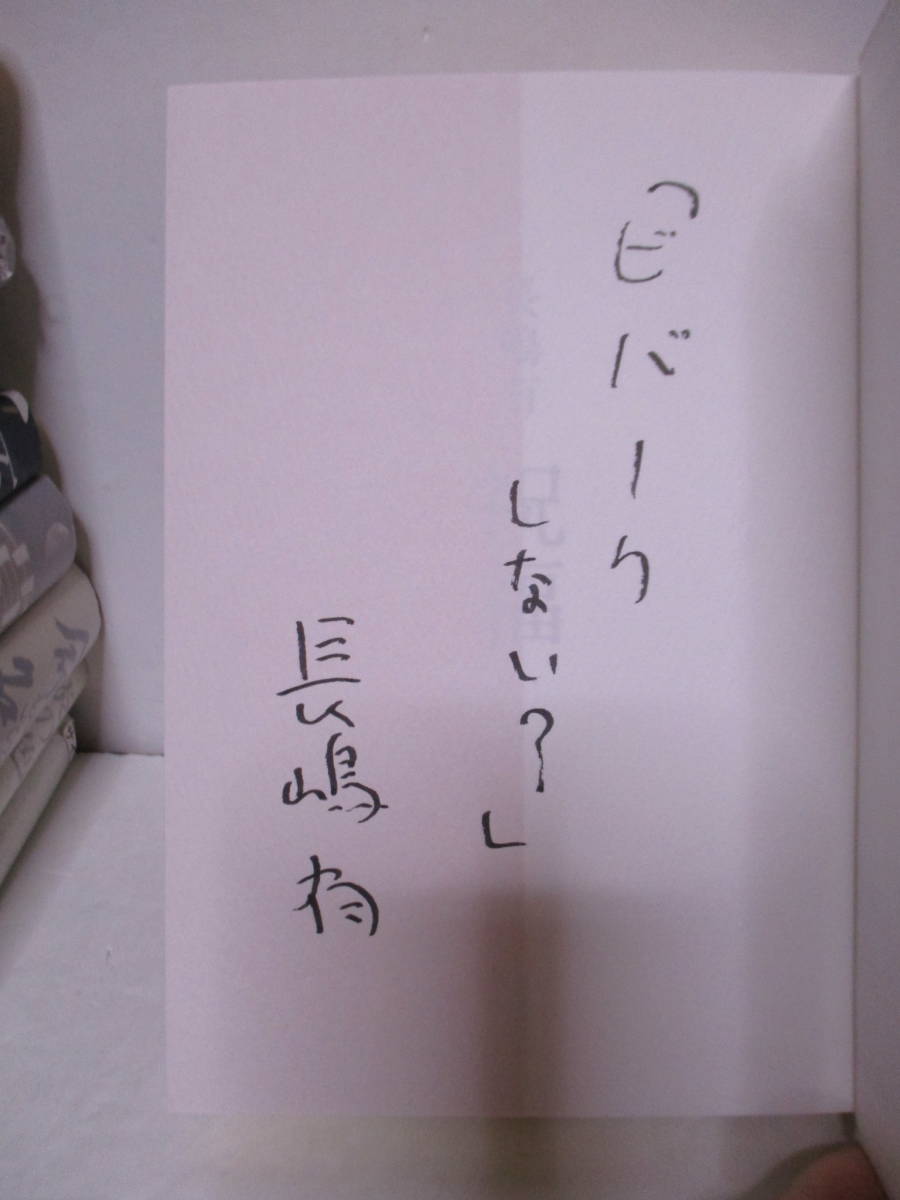 「ビバーク
しない？」
長嶋有